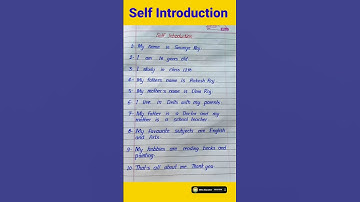 Self Introduction
Self Introduction
1- My name is Soumya Roy.
2- I am 16 years old.
3- I study in class 11th.
4- My father's name is Mukesh Roy.
5- My mother's name is Uma Roy.
6- I live in Delhi with my parents.
7- My father is a Doctor and my
mother is a school teacher.
8- My favourite subjects are English
and Arts.
9- My hobbies are reading books and
painting.
10- That's all about me. Thank you